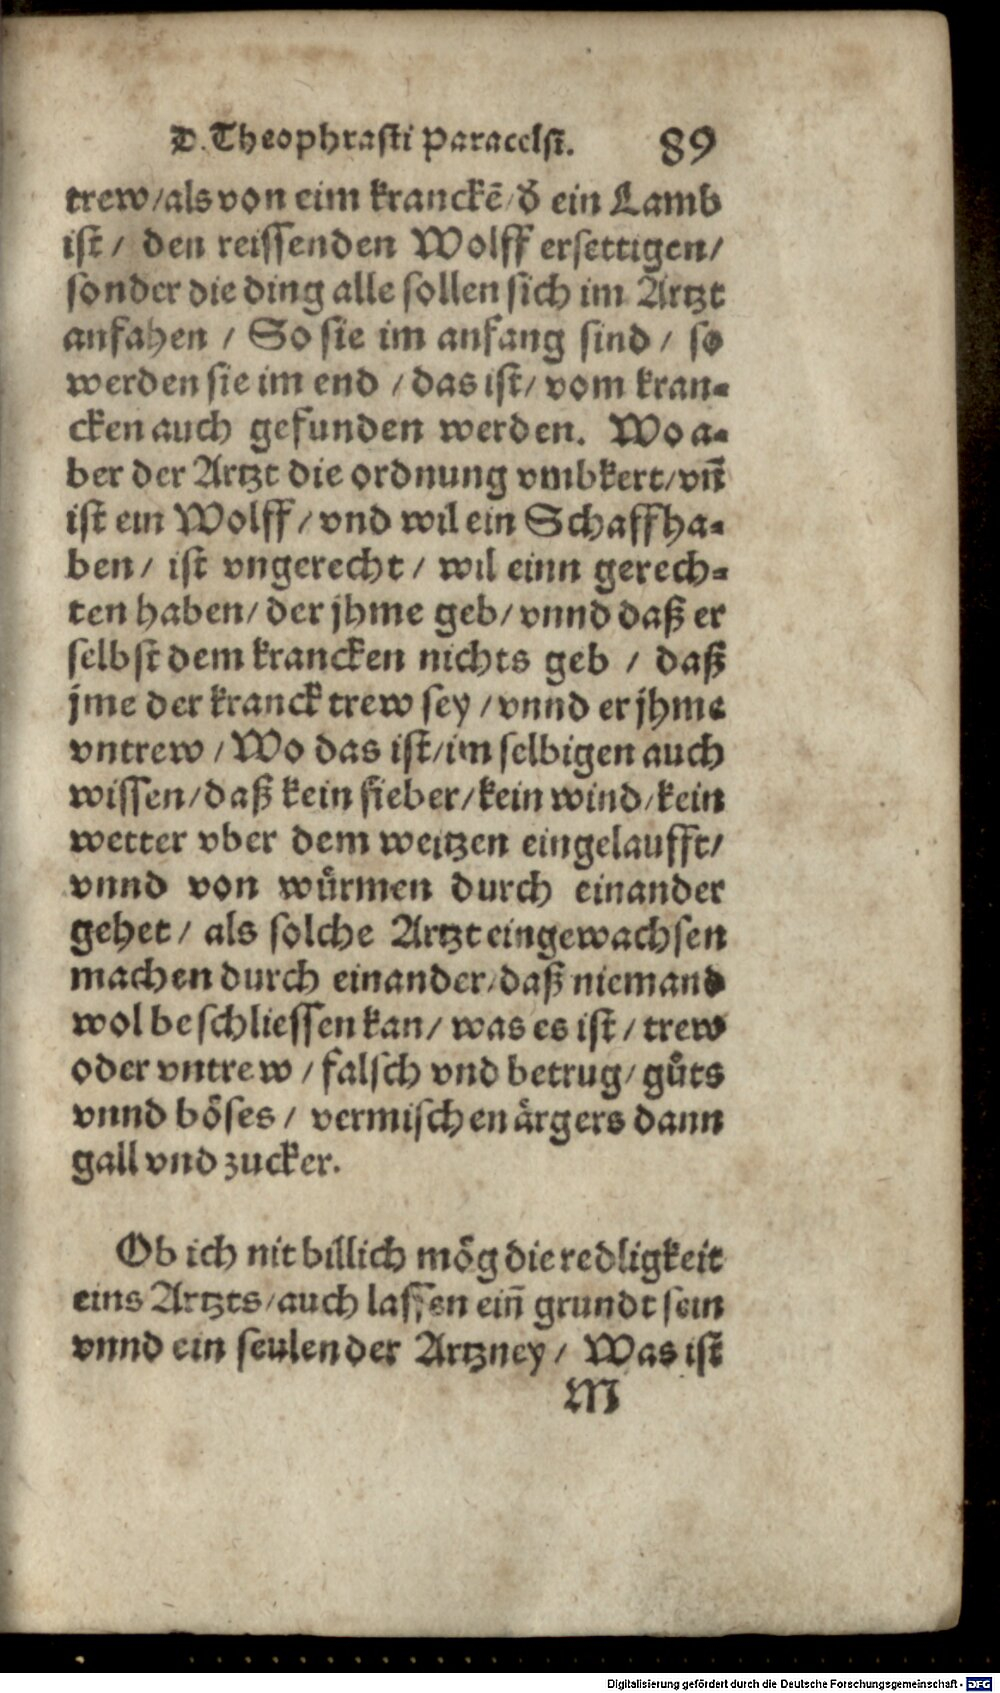 D. Theophrasti Paracelsi. 89
trew/als von eim kranckē/d̄ ein Lamb
ist/ den reissenden Wolff ersettigen/
sonder die ding alle sollen sich im Artzt
anfahen / So sie im anfang sind / so
werden sie im end / das ist/ vom kran-
cken auch gefunden werden. Wo a-
ber der Artzt die ordnung vmbkert/vn̄
ist ein Wolff / vnd wil ein Schaff ha-
ben/ ist vngerecht / wil einn gerech-
ten haben/ der jhme geb/ vnnd daß er
selbst dem krancken nichts geb / daß
jme der kranck trew sey / vnnd er jhme
vntrew / Wo das ist/im selbigen auch
wissen/daß kein fieber/kein wind/kein
wetter vber dem weitzen eingelaufft/
vnnd von wuͤrmen durch einander
gehet / als solche Artzt eingewachsen
machen durch einander/daß niemand
wol beschliessen kan/ was es ist / trew
oder vntrew / falsch vnd betrug/ guͤts
vnnd boͤses / vermischen aͤrgers dann
gall vnd zucker.
Ob ich nit billich moͤg die redligkeit
eins Artzts/auch lassen ein̄ grundt sein
vnnd ein seulen der Artzney / Was ist
M
Digitalisierung gefördert durch die Deutsche Forschungsgemeinschaft - DFG